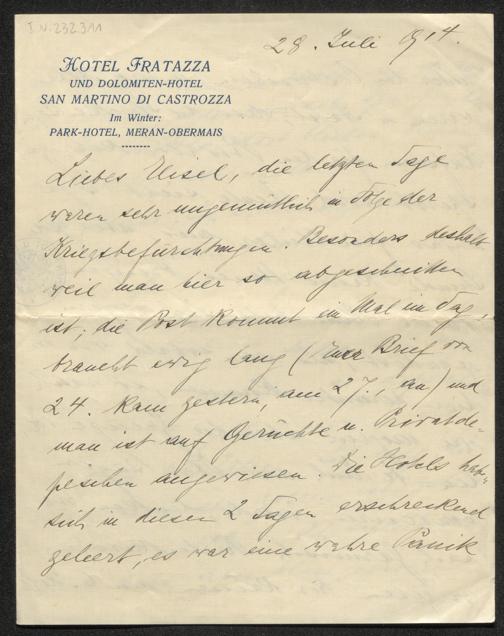 I.N. 232.311
28. Juli 1914.
HOTEL FRATAZZA
UND DOLOMITEN-HOTEL
SAN MARTINO DI CASTROZZA
Im Winter:
PARK-HOTEL, MERAN-OBERMAIS
Liebes Elisel, die letzten Tage
waren sehr ungemütlich in Folge der
Kriegsbefürchtungen. Besonders deshalb
weil man hier so abgeschnitten
ist; die Post kommt ein Mal im Tag,
braucht ewig lang (Euer Brief von
24. kam gestern, am 27., an) und
man ist auf Gerüchte u. Privatde-
peschen angewiesen. Die Hotels hab-
sich in diesen 2 Tagen erschreckend
geleert, es war eine wahre Panik